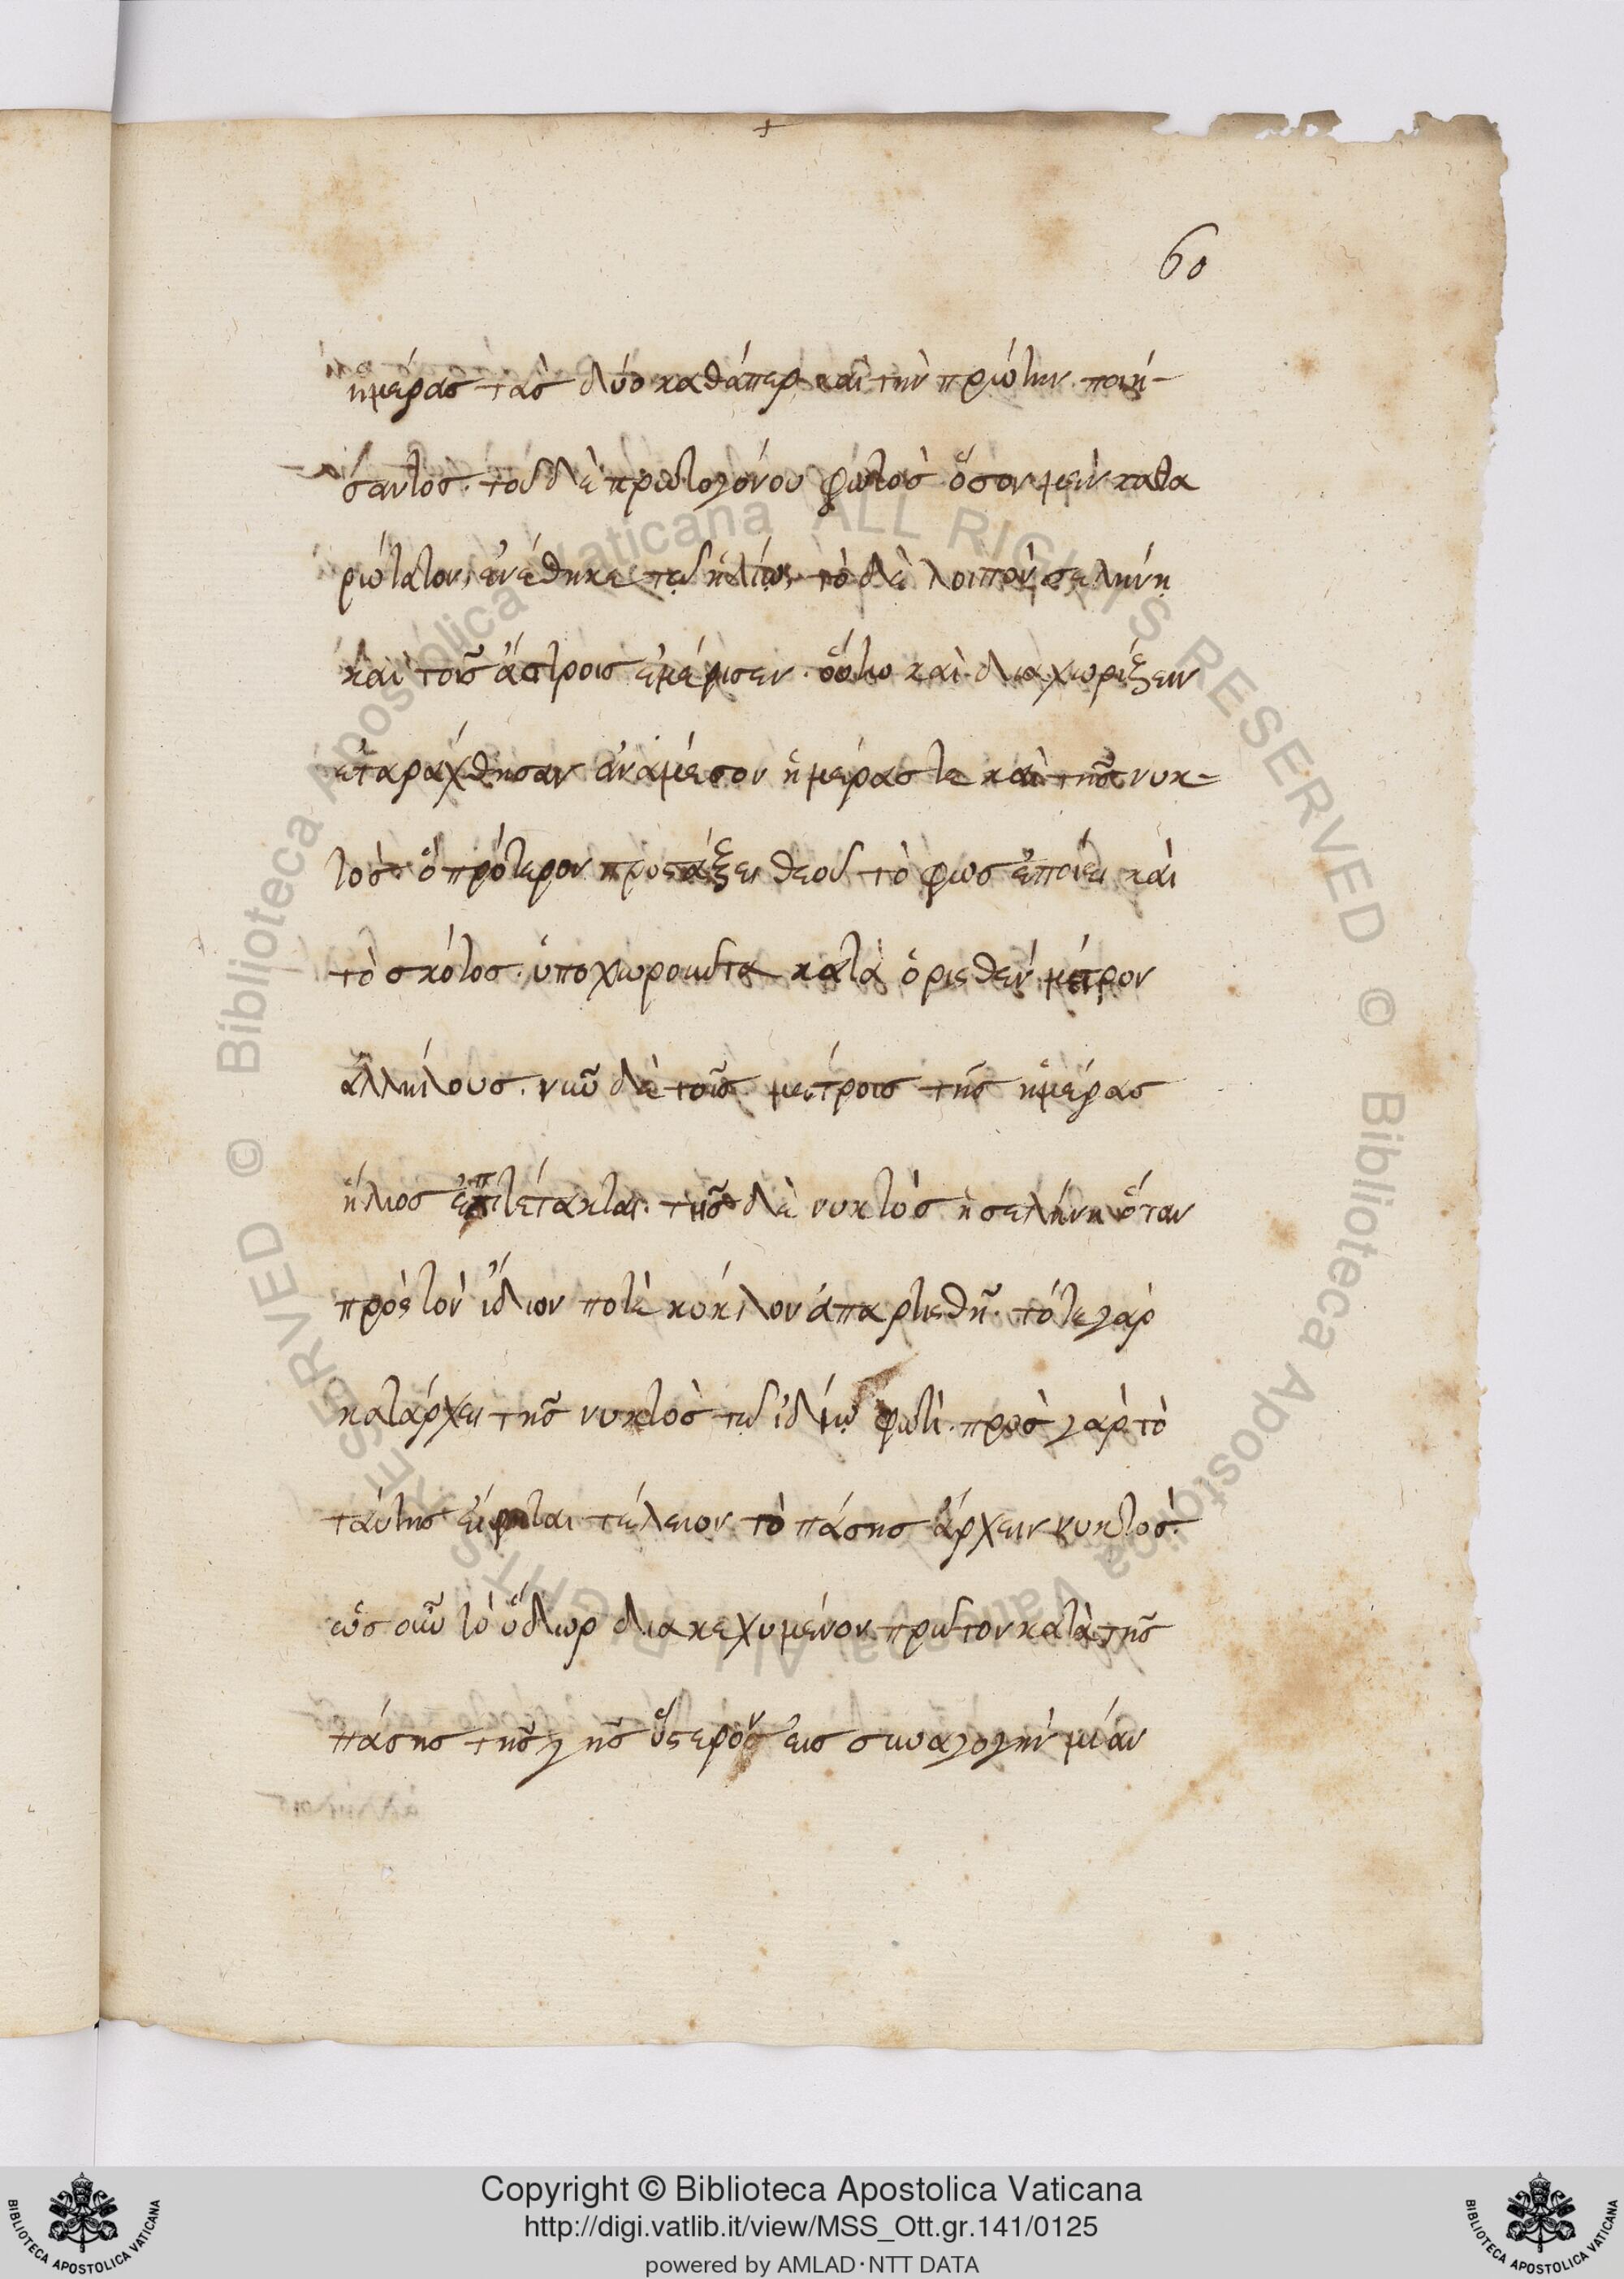 +
60
ἡμέρας τὰς δύο καθάπερ καὶ τὴν πρώτην ποιή-
σαντος. τοῦ δὲ πρωτογόνου φωτὸς ὅσον μὲν καθα
ρώτατον, ἐνέθηκε τῷ ἡλίῳ, τὸ δὲ λοιπὸν σελήνῃ
καὶ τοῖς ἄστροις ἐμέρισεν. οὕτω καὶ διαχωρίξειν
ἐταράχθησαν ἀνάμεσον ἡμέρας τε καὶ τῆς νυκ-
τός. ὃ πρότερον προστάξει θεοῦ τὸ φως ἐποίει καὶ
τὸ σκότος. ὑποχωροῦντα κατὰ ὁρισθέν μέτρον
ἀλλήλους. νῦν δὲ τοῖς μέτροις τῆς ἡμέρας
ἥλιος ἐπιτέτακται. τῆς δὲ νυκτὸς ἡ σελήνη ὅταν
πρὸς τὸν ἴδιον ποτὲ κύκλον ἀπαρτισθῇ. τότε γὰρ
κατάρχει τῆς νυκτὸς τῷ ἰδίῳ φωτὶ. πρὸς γὰρ τὸ
ταύτης εἴρηται τέλειον τὸ πάσης ἄρχειν νυκτός.
ὡς οὖν τὸ ὕδωρ διακεχυμένον πρῶτον κατὰ τῆς
πάσης τῆς γῆς ὕστερον εἰς συναγωγὴν μίαν
Copyright © Biblioteca Apostolica Vaticana
http://digi.vatlib.it/view/MSS_Ott.gr.141/0125
powered by AMLAD·NTT DATA
BIBLIOTECA APOSTOLICA VATICANA
BIBLIOTECA APOSTOLICA VATICANA
© Biblioteca Apostolica Vaticana ALL RIGHTS RESERVED © Biblioteca Apostolica Vaticana ALL RIGHTS RESERVED